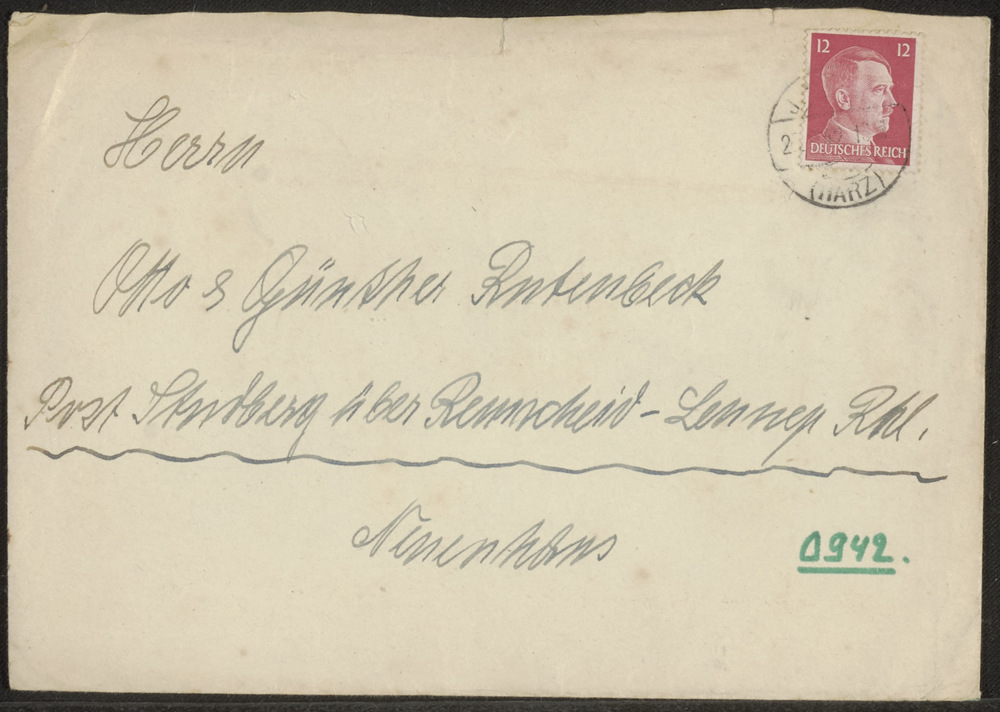 12 12
DEUTSCHES REICH
(HARZ)
Herrn
Otto & Günther Rutenbeck
Post Studberg über Remscheid - Lennep Rhl.
Neuenhaus
0942.